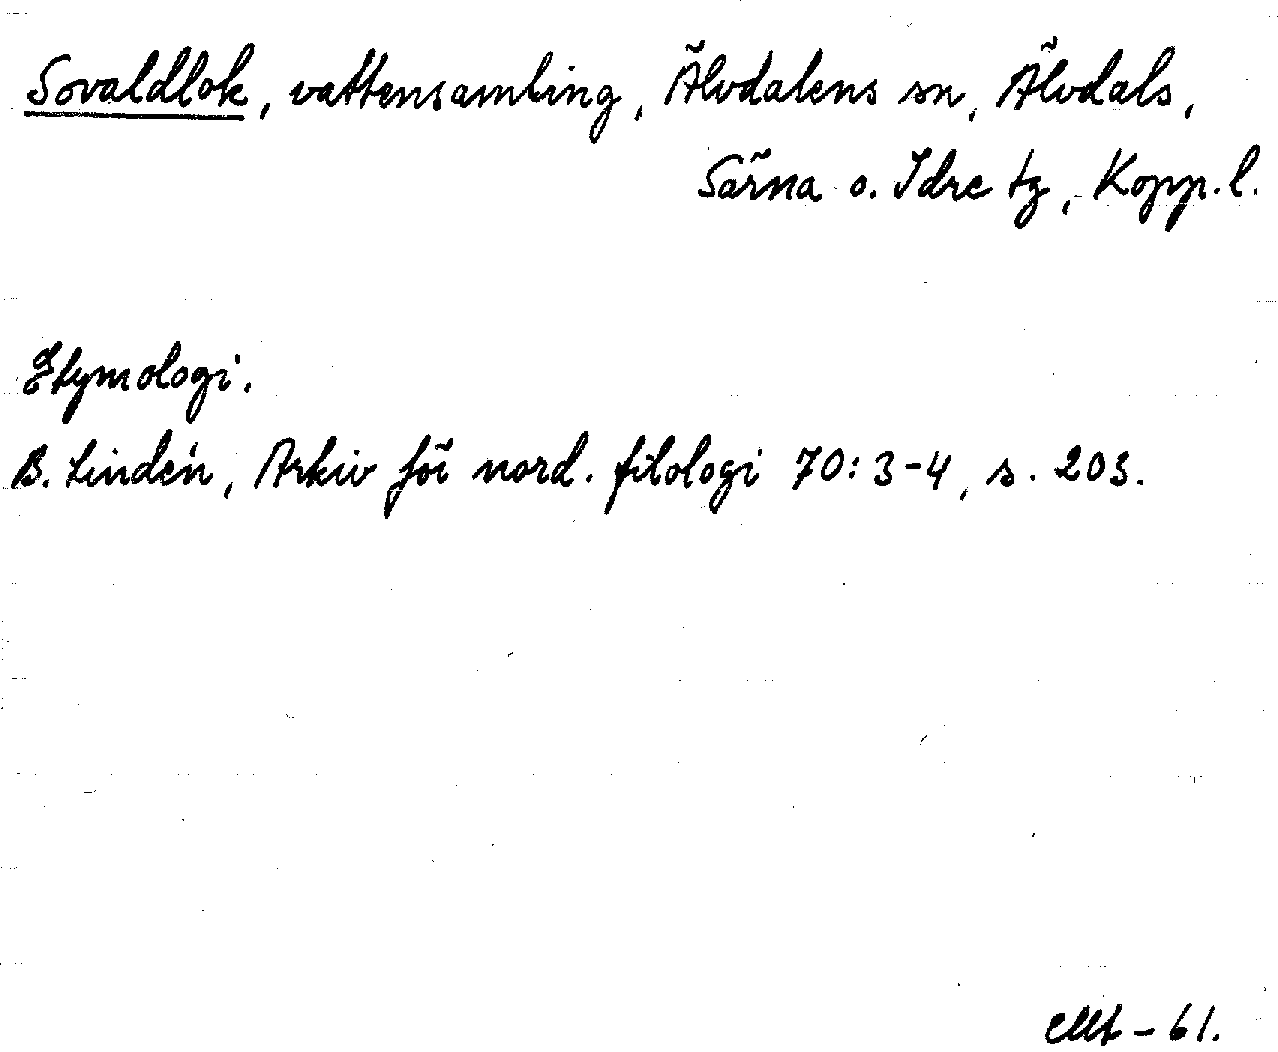 Sovaldlok, vattensamling, Älvdalens sn, Älvdals,
Särna o. Idre tg, Kopp. l.
Etymologi.
B. Lindén, Arkiv för nord. filologi 70: 3-4, s. 203.
-61.